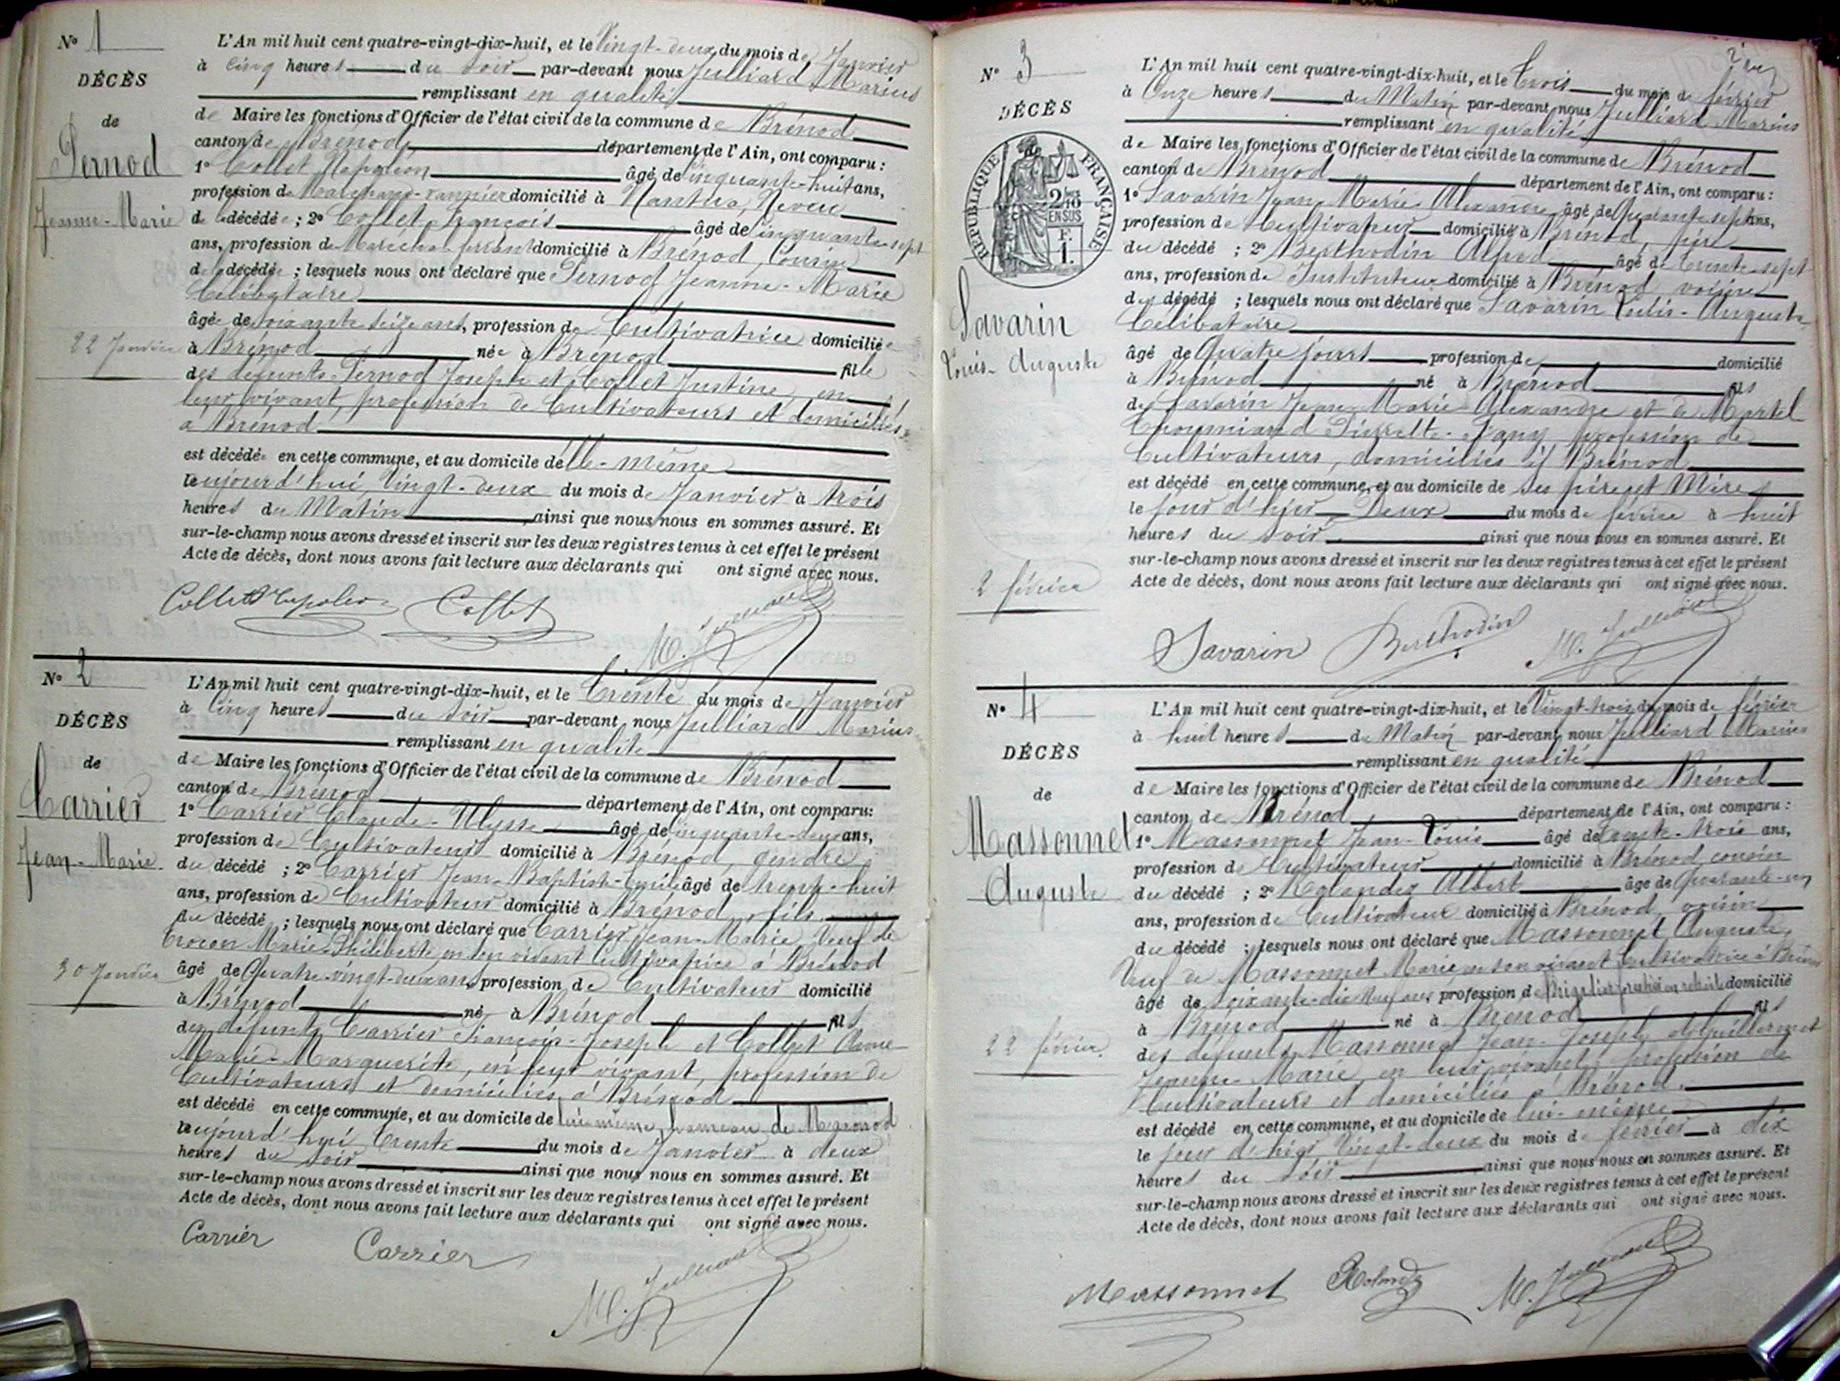 No 1
DÉCÈS
de
Pernod
Jeanne-Marie
22 Janvier
L'An mil huit cent quatre-vingt-dix-huit, et le Vingt-deux du mois de Janvier
à Cinq heures du Soir par-devant nous Julliard Marius
remplissant en qualité
de Maire les fonctions d'Officier de l'état civil de la commune de Brénod
canton de Brénod département de l'Ain, ont comparu :
1° Collet Napoléon âgé de cinquante-huit ans,
profession de domicilié à Nantua, Neveu
de la décédée ; 2° Collet François âgé de cinquante-sept
ans, profession de Maréchal-ferrant domicilié à Brénod, Cousin
de la décédée ; lesquels nous ont déclaré que Pernod Jeanne-Marie
Célibataire
âgée de soixante seize ans, profession de Cultivatrice domiciliée
à Brénod née à Brénod fille
des défunts Pernod Joseph et Collet Justine, en
leur vivant, profession de Cultivateurs et domiciliés
à Brénod
est décédée en cette commune, et au domicile d'elle-même
aujourd'hui Vingt-deux du mois de Janvier à trois
heures du Matin ainsi que nous nous en sommes assuré. Et
sur-le-champ nous avons dressé et inscrit sur les deux registres tenus à cet effet le présent
Acte de décès, dont nous avons fait lecture aux déclarants qui ont signé avec nous.
Collet Napoléon Collet M. Julliard
No 2
DÉCÈS
de
Carrier
Jean-Marie
30 Janvier
L'An mil huit cent quatre-vingt-dix-huit, et le Trente du mois de Janvier
à Cinq heures du Soir par-devant nous Julliard Marius
remplissant en qualité
de Maire les fonctions d'Officier de l'état civil de la commune de Brénod
canton de Brénod département de l'Ain, ont comparu:
1° Carrier Claude-Ulysse âgé de cinquante-deux ans,
profession de Cultivateur domicilié à Brénod, gendre
du décédé ; 2° Carrier Jean-Baptiste-Emile âgé de trente-huit
ans, profession de Cultivateur domicilié à Brénod, fils
du décédé ; lesquels nous ont déclaré que Carrier Jean-Marie Veuf de
Marie-Philiberte en son vivant cultivatrice à Brénod
âgé de Quatre-vingt-deux ans, profession de Cultivateur domicilié
à Brénod né à Brénod fils
des défunts Carrier François-Joseph et Collet Anne
Marie-Marguerite, en leur vivant, profession de
Cultivateurs et domiciliés à Brénod
est décédé en cette commune, et au domicile de lui-même, hameau de Macconod
aujourd'hui Trente du mois de Janvier à deux
heures du Soir ainsi que nous nous en sommes assuré. Et
sur-le-champ nous avons dressé et inscrit sur les deux registres tenus à cet effet le présent
Acte de décès, dont nous avons fait lecture aux déclarants qui ont signé avec nous.
Carrier Carrier M. Julliard
No 3
DÉCÈS
RÉPUBLIQUE FRANÇAISE
2/10
EN SUS
F.
1.
Savarin
Louis-Auguste
2 février
L'An mil huit cent quatre-vingt-dix-huit, et le Trois du mois de février
à Onze heures du Matin par-devant nous Julliard Marius
remplissant en qualité
de Maire les fonctions d'Officier de l'état civil de la commune de Brénod
canton de Brénod département de l'Ain, ont comparu :
1° Savarin Jean-Marie-Alexandre âgé de Quarante-sept ans,
profession de Cultivateur domicilié à Brénod, père
du décédé ; 2° Berthodin Alfred âgé de trente-sept
ans, profession de Instituteur domicilié à Brénod voisin
du décédé ; lesquels nous ont déclaré que Savarin Louis-Auguste
Célibataire
âgé de Quatre jours profession de domicilié
à Brénod né à Brénod fils
de Savarin Jean-Marie-Alexandre et de Martel
Pierrette-Fany profession de
Cultivateurs, domiciliés à Brénod
est décédé en cette commune, et au domicile de ses père et Mère
le jour d'hier Deux du mois de février à huit
heures du Soir ainsi que nous nous en sommes assuré. Et
sur-le-champ nous avons dressé et inscrit sur les deux registres tenus à cet effet le présent
Acte de décès, dont nous avons fait lecture aux déclarants qui ont signé avec nous.
Savarin Berthodin M. Julliard
No 4
DÉCÈS
de
Massonnet
Auguste
22 février
L'An mil huit cent quatre-vingt-dix-huit, et le Vingt-trois du mois de février
à huit heures du Matin par-devant nous Julliard Marius
remplissant en qualité
de Maire les fonctions d'Officier de l'état civil de la commune de Brénod
canton de Brénod département de l'Ain, ont comparu :
1° Massonnet Jean-Louis âgé de trente-trois ans,
profession de Cultivateur domicilié à Brénod, cousin
du décédé ; 2° Rolandez Albert âgé de Quarante-un
ans, profession de Cultivateur domicilié à Brénod voisin
du décédé ; lesquels nous ont déclaré que Massonnet Auguste,
Veuf de Massonnet Marie en son vivant Cultivatrice à Brénod
âgé de soixante-dix neuf ans profession de Brigadier forestier en retraite domicilié
à Brénod né à Brénod fils
des défunts Massonnet Jean-Joseph et Guillermet
Jeanne-Marie, en leur vivant, profession de
Cultivateurs et domiciliés à Brénod
est décédé en cette commune, et au domicile de lui-même
le jour d'hier Vingt-deux du mois de février à dix
heures du Soir ainsi que nous nous en sommes assuré. Et
sur-le-champ nous avons dressé et inscrit sur les deux registres tenus à cet effet le présent
Acte de décès, dont nous avons fait lecture aux déclarants qui ont signé avec nous.
Massonnet Rolandez M. Julliard